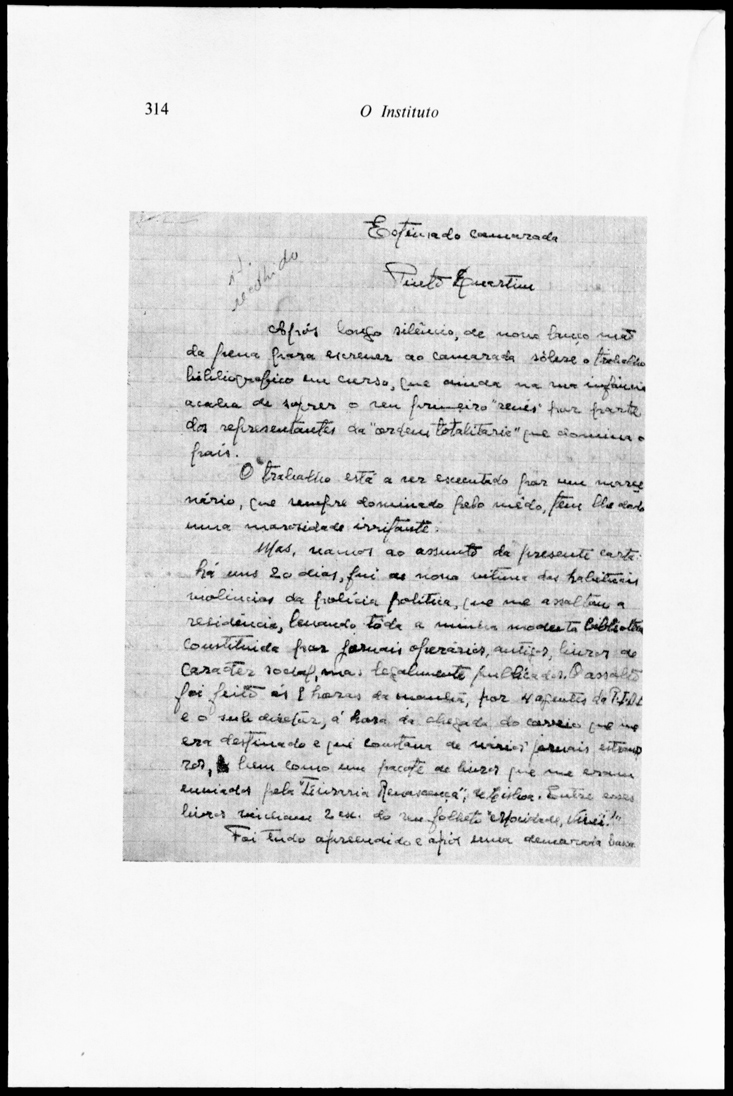 314
O Instituto
Estimado camarada
Pinto Quartim
recolhido
Após longo silêncio, de novo lanço mão
da pena para escrever ao camarada sôbre o trabalho
bibliografico em curso, que ainda na sua infância
acaba de sofrer o seu primeiro "revés" por parte
dos representantes da "ordem totalitária" que domina o
país.
O trabalho está a ser executado por um merce
nário, que sempre dominado pelo mêdo, tem lhe dado
uma morosidade irritante.
Mas, vamos ao assunto da presente carta:
há uns 20 dias, fui de novo vitima das habituais
violencias da polícia politica, que me assaltou a
residência, levando tôda a minha modesta biblioteca
constituida por jornais operários, antigos, livros de
carácter social, mas legalmente publicados. O assalto
foi feito ás 8 horas da manhã, por 4 agentes da P.I.D.E.
e o sub-diretor, á hora da chegada do correio que me
era destinado e que constava de vários jornais estran
ros, bem como um pacote de livros que me eram
enviados pela "Livraria Renascença", de Lisboa. Entre esses
livros vinham 2 ex. do seu folheto "Mocidade, Vivei!"
Foi tudo apreendido e após uma demorada busca